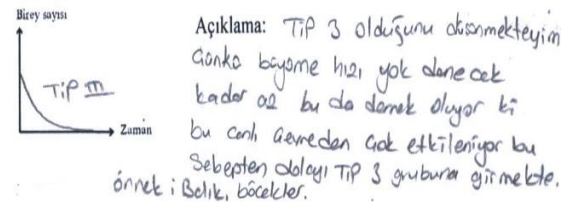 Birey sayısı
Açıklama: TİP 3 olduğunu düşünmekteyim
Çünkü büyüme hızı yok denecek
TİP III
kadar az bu da demek oluyor ki
Zaman
bu canlı çevreden çok etkileniyor bu
Sebepten dolayı TİP 3 grubuna girmekte.
örnek : Balık, böcekler.